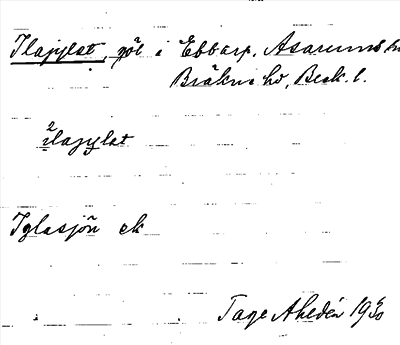 Ilagylet, göl i Ebbarp, Asarums
Bräkne hd, Blek. l.
2ilagylet
Iglasjön ek
Tage Ahedén 1930